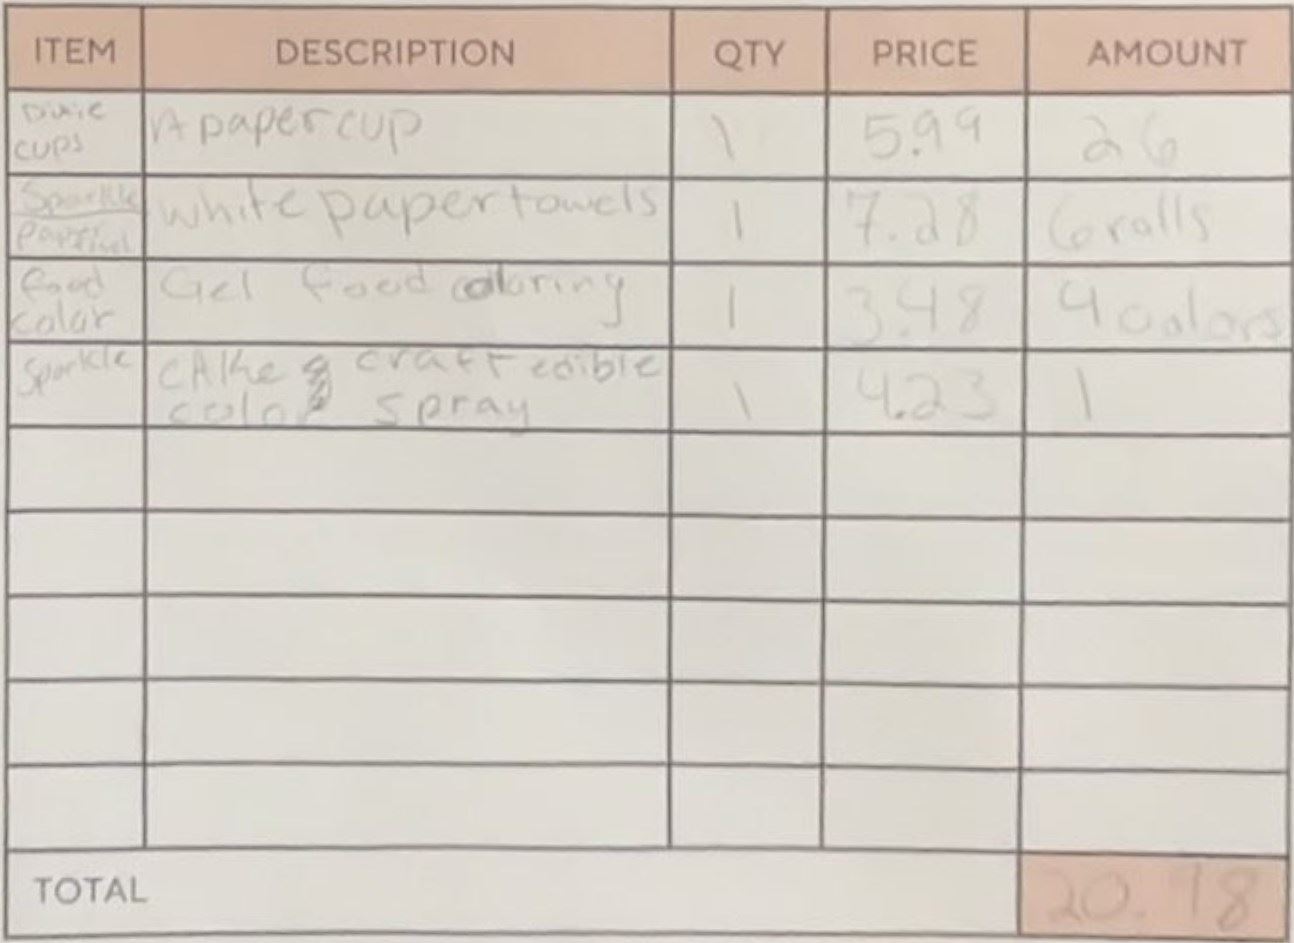 ITEM DESCRIPTION QTY PRICE AMOUNT
Dixie cups A paper cup 1 5.99 26
Sparkle white paper towels 1 7.28 6 rolls
food color Gel food coloring 1 3.48 4 colors
Sparkle cake & craft edible color spray 1 4.23 1
TOTAL 20.98